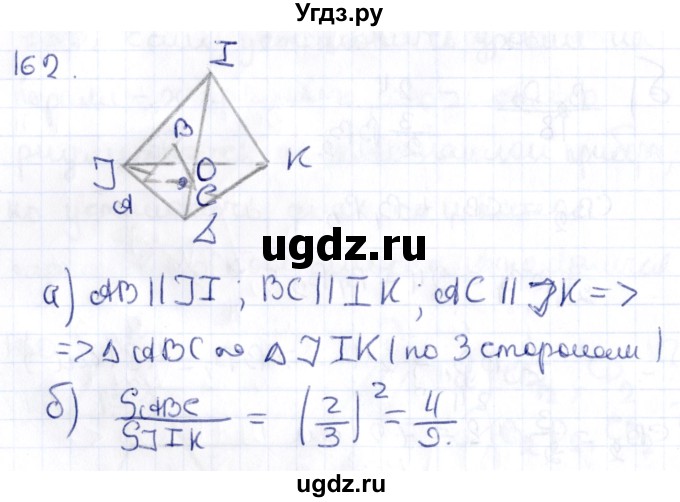 Угдз.ру
162.
I
B
J
O
K
A
C
Δ
ugdz.ru
а) AB || JI ; BC || IK ; AC || JK =>
=> Δ ABC ~ Δ JIK (по 3 сторонам)
б) SABC / SJIK = (2/3)² = 4/9.
ugdz.ru
ugdz.ru